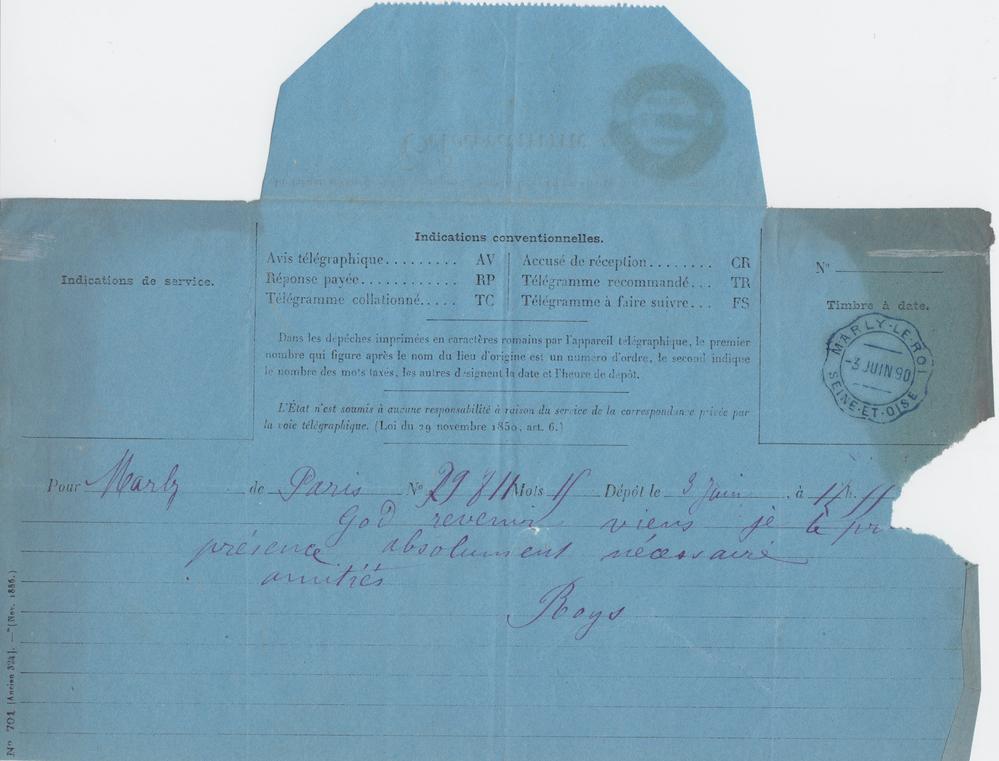 Indications conventionnelles.
Avis télégraphique......... AV
Réponse payée............ RP
Télégramme collationné..... TC
Accusé de réception........ CR
Télégramme recommandé... TR
Télégramme à faire suivre... FS
Indications de service.
N°
Timbre à date.
MARLY-LE-ROI
-3 JUIN 90
SEINE-ET-OISE
Dans les dépêches imprimées en caractères romains par l'appareil télégraphique, le premier
nombre qui figure après le nom du lieu d'origine est un numéro d'ordre, le second indique
le nombre des mots taxés, les autres désignent la date et l'heure de dépôt.
L'État n'est soumis à aucune responsabilité à raison du service de la correspondance privée par
la voie télégraphique. (Loi du 29 novembre 1850, art. 6.)
Pour Marly de Paris N° Mots Dépôt le 3 Juin, à h.
revenir viens je
présence absolument nécessaire
amitiés
Roys
N° 701 (Ancien 324). — (Nov. 1886.)